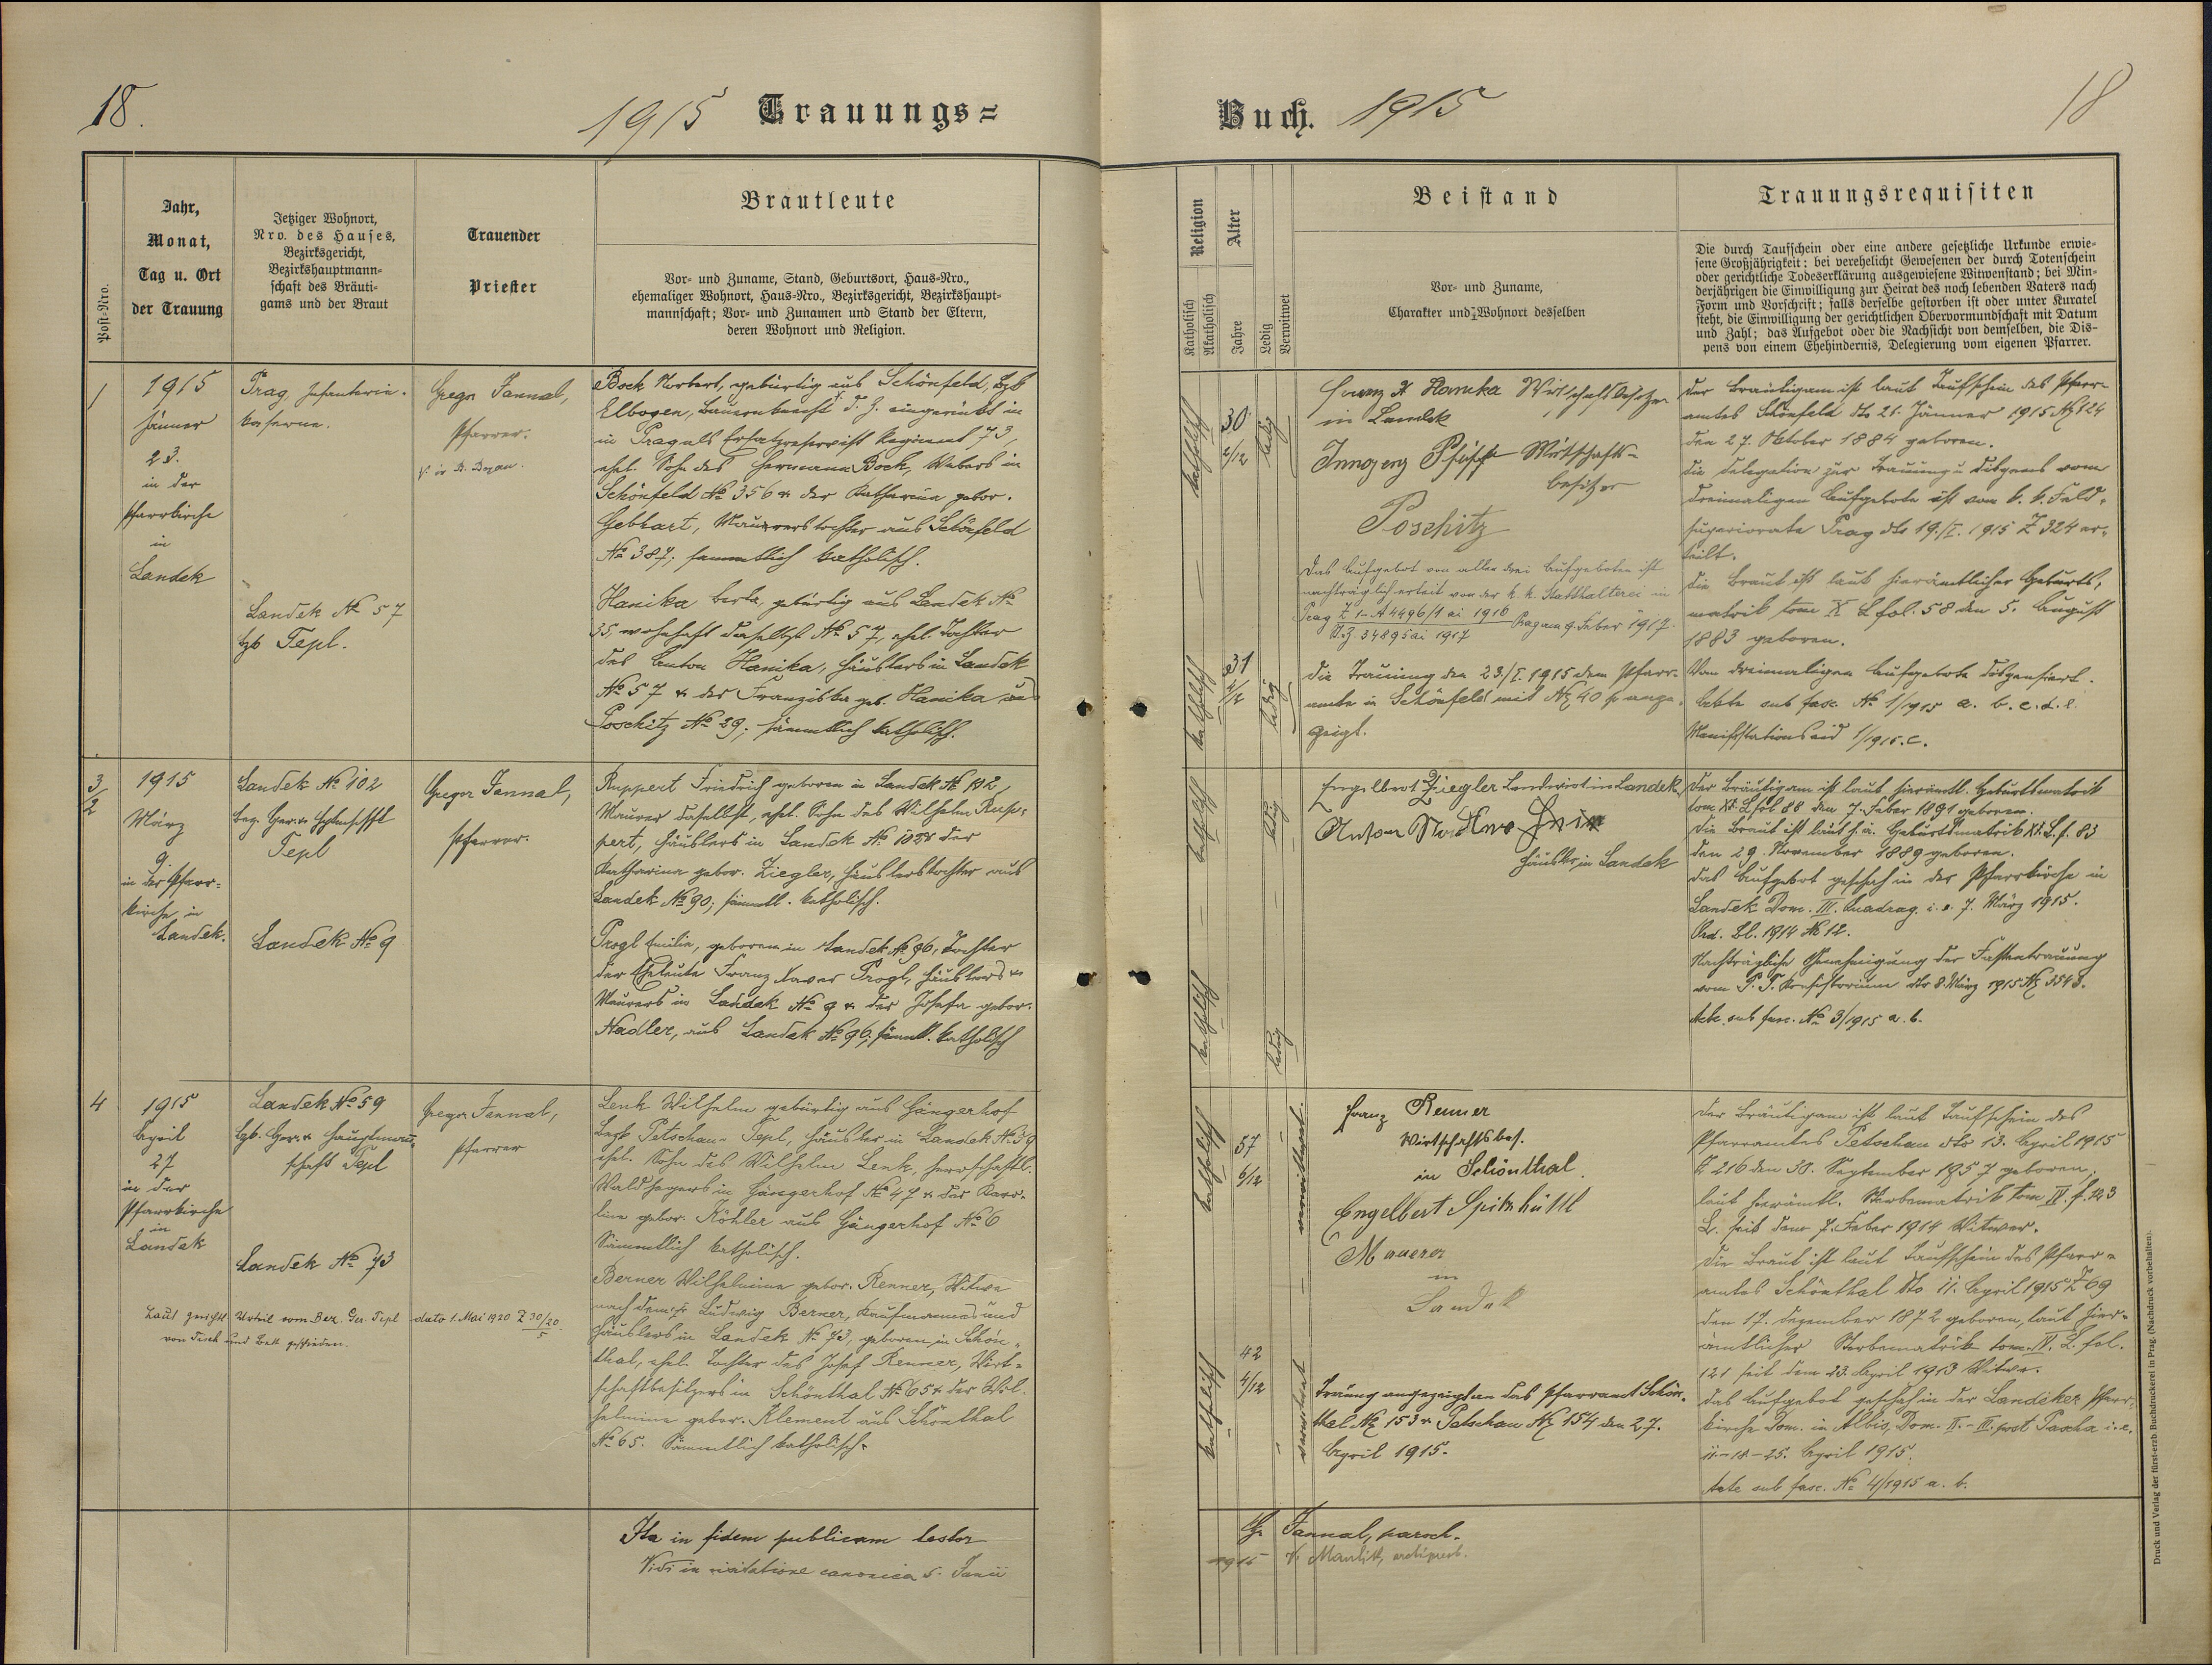 18.
1915 Trauungs=
Buch. 1915
18
Post-Nro.
Jahr,
Monat,
Tag u. Ort
der Trauung
Jetziger Wohnort,
Nro. des Hauses,
Bezirksgericht,
Bezirkshauptmann=
schaft des Bräuti=
gams und der Braut
Trauender
Priester
Brautleute
Vor- und Zuname, Stand, Geburtsort, Haus-Nro.,
ehemaliger Wohnort, Haus-Nro., Bezirksgericht, Bezirkshaupt=
mannschaft; Vor- und Zunamen und Stand der Eltern,
deren Wohnort und Religion.
Religion
Katholisch
Akatholisch
Alter
Jahre
Ledig
Verwitwet
Beistand
Vor- und Zuname,
Charakter und Wohnort desselben
Trauungsrequisiten
Die durch Taufschein oder eine andere gesetzliche Urkunde erwie=
sene Großjährigkeit; bei verehelicht Gewesenen der durch Totenschein
oder gerichtliche Todeserklärung ausgewiesene Witwenstand; bei Min=
derjährigen die Einwilligung zur Heirat des noch lebenden Vaters nach
Form und Vorschrift; falls derselbe gestorben ist oder unter Kuratel
steht, die Einwilligung der gerichtlichen Obervormundschaft mit Datum
und Zahl; das Aufgebot oder die Nachsicht von demselben, die Dis=
pens von einem Ehehindernis, Delegierung vom eigenen Pfarrer.
1
1915
Jänner
23.
in der
Pfarrkirche
in
Landek
Prag, Infanterie-
kaserne.
Landek № 57
Bzb Tepl.
Gregor Fannal,
Pfarrer.
Bock Norbert, gebürtig aus Schönfeld, Bzb
Elbogen, Bauernknecht d. Z. eingerückt in
in Prag als Ersatzreservist Regiment 73,
ehel. Sohn des Hermann Bock, Webers in
Schönfeld № 356 u. der Katharina gebor.
Gebhart, Maurerstochter aus Schönfeld
№ 387; sämmtlich katholisch.
Hanika Berta, gebürtig aus Landek №
35, wohnhaft daselbst № 57, ehel. Tochter
des Anton Hanika, Häuslers in Landek
№ 57 u. der Franziska geb. Hanika aus
Poschitz № 29; sämmtlich katholisch.
katholisch
30
2/12
ledig
katholisch
31
ledig
Franz X Hanika Wirtschaftsbesitzer
in Landek
Wirtschafts-
besitzer
Poschitz
Das Aufgebot von allen drei Aufgeboten ist
nachträglich erteilt von der k. k. Statthalterei in
Prag Z 1-A 4496/1 ai 1916 Prag am 9. Feber 1917.
34895 ai 1917
Die Trauung den 23./I. 1915 dem Pfarr-
amte in Schönfeld mit № 40 ange-
zeigt.
Der Bräutigam ist laut Taufschein des Pfarr-
amtes Schönfeld dto 21. Jänner 1915 № 124
den 27. Oktober 1884 geboren.
Die Delegation zur Trauung u. Dispens vom
dreimaligen Aufgebote ist vom k. k. Feld-
superiorate Prag dto 19./I. 1915 Z 324 er-
teilt.
Die Braut ist laut hierämtlicher Geburts-
matrik tom X L fol. 58 den 5. August
1883 geboren.
Vom dreimaligen Aufgebote dispensiert.
Acta sub fasc. № 1/1915 a. b. c. d. e.
Manifestationseid 1/1915. c.
3/2
1915
März
9.
in der Pfarr-
kirche in
Landek.
Landek № 102
Bez. Ger. u. Hptmschft
Tepl
Landek № 9
Gregor Fannal,
Pfarrer.
Ruppert Friedrich geboren in Landek № 102,
Maurer daselbst, ehel. Sohn des Wilhelm Rup-
pert, Häuslers in Landek № 102 u. der
Katharina gebor. Ziegler, Häuslerstochter aus
Landek № 90; sämmtl. katholisch.
Progl Emilie, geboren in Landek № 96, Tochter
der Eheleute Franz Xaver Progl, Häuslers u.
Maurers in Landek № 9 u. der Josefa gebor.
Nadler, aus Landek № 96; sämmtl. katholisch
katholisch
ledig
katholisch
ledig
Engelbert Ziegler Landwirt in Landek
Häusler in Landek
Der Bräutigam ist laut hierämtl. Geburtsmatrik
tom. XI. L fol. 88 den 7. Feber 1891 geboren.
Die Braut ist laut h. ä. Geburtsmatrik XI. L. f. 83
den 29. November 1889 geboren.
Das Aufgebot geschah in der Pfarrkirche in
Landek Dom. III. Quadrag. i. e. 7. März 1915.
Ord. Bl. 1914 № 12.
Nachträgliche Genehmigung der Fastentrauung
vom P. T. Konsistorium dto 8. März 1915 № 3548.
Acte sub fasc. № 3/1915 a. b.
4
1915
April
27
in der
Pfarrkirche
in
Landek
Landek № 59
Bzb. Ger. u. Hauptmann-
schaft Tepl
Landek № 73
Laut gerichtl. Urteil vom Bez. Ger. Tepl dato 1. Mai 1920 Z 30/20
5
von Tisch und Bett geschieden.
Gregor Fannal,
Pfarrer
Lenk Wilhelm gebürtig aus Gängerhof
Bezb Petschau-Tepl, Häusler in Landek № 59
ehel. Sohn des Wilhelm Lenk, herrschaftl.
Waldhegers in Gängerhof № 47 u. der Karo-
line gebor. Köhler aus Gängerhof № 6
Sämmtlich katholisch.
Berner Wilhelmine gebor. Renner, Witwe
nach dem Ludwig Berner, Kaufmannes und
Häuslers in Landek № 73, geboren in Schön-
thal, ehel. Tochter des Josef Renner, Wirt-
schaftsbesitzers in Schönthal № 65 u. der Wil-
helmine gebor. Klement aus Schönthal
№ 65. Sämmtlich katholisch.
katholisch
57
6/12
verwitwet
katholisch
42
4/12
verwitwet
Franz Renner
Wirtschaftsbes.
in Schönthal.
Engelbert Spitzhüttl
Mauerer
in
Landek
Trauung angezeigt an das Pfarramt Schön-
thal № 153 u. Petschau № 154 den 27.
April 1915.
Der Bräutigam ist laut Taufschein des
Pfarramtes Petschau dto 13. April 1915
Z 216 den 30. September 1857 geboren;
laut hierämtl. Sterbematrik tom IV. f. 123
L. seit dem 7. Feber 1914 Witwer.
Die Braut ist laut Taufschein des Pfarr-
amtes Schönthal dto 11. April 1915 Z 69
den 17. Dezember 1872 geboren, laut hier-
ämtlicher Sterbematrik tom. IV. L. fol.
121 seit dem 23. April 1913 Witwe.
Das Aufgebot geschah in der Landeker Pfarr-
kirche Dom. in Albis, Dom. II. - III. post Pascha i. e.
11. - 18 - 25. April 1915.
Acte sub fasc. № 4/1915 a. b.
Ita in fidem publicam testor
Gr Fannal, paroch.
Vidi in visitatione canonica 5. Junii
1915
Druck und Verlag der fürst-erzb. Buchdruckerei in Prag. (Nachdruck vorbehalten).